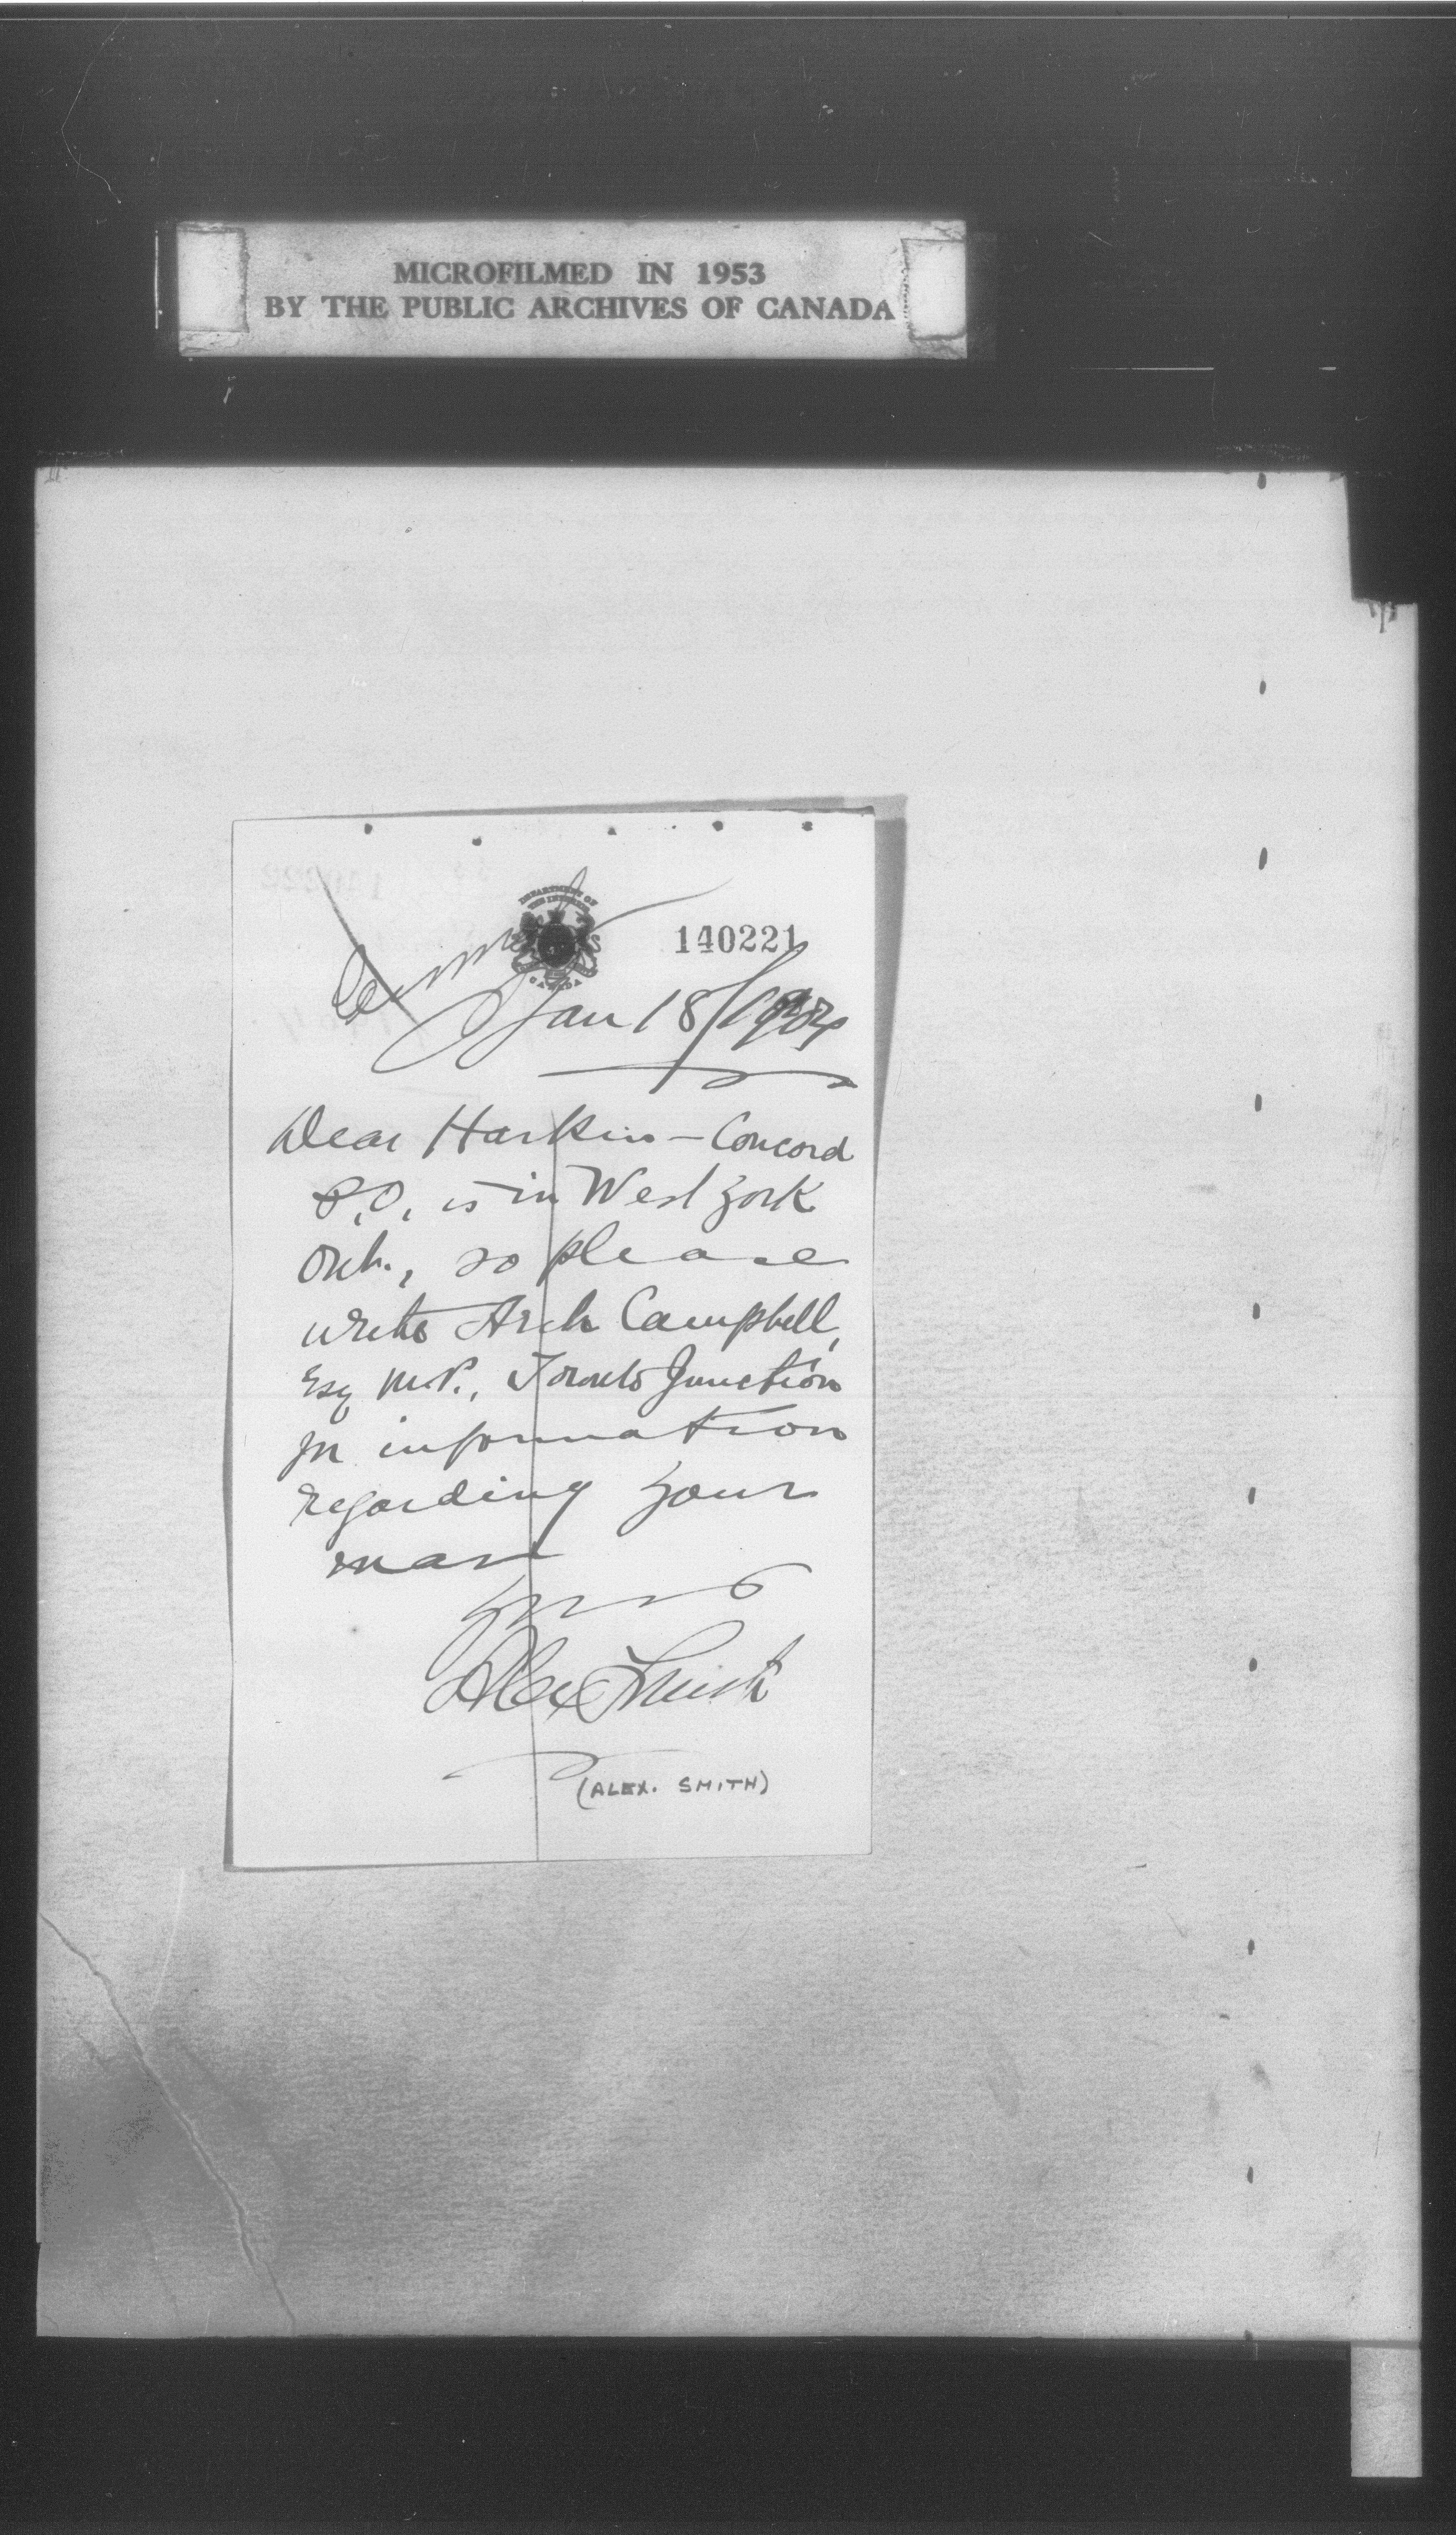 MICROFILMED IN 1953
BY THE PUBLIC ARCHIVES OF CANADA
DEPARTMENT OF
THE INTERIOR
CANADA
140221
Jan 18/1904
Dear Harkin - Concord
P.O. is in West York
Ont., so please
write Arch Campbell,
Esq M.P., Toronto Junction
for information
regarding your
man
Yours
Alex Smith
(ALEX. SMITH)